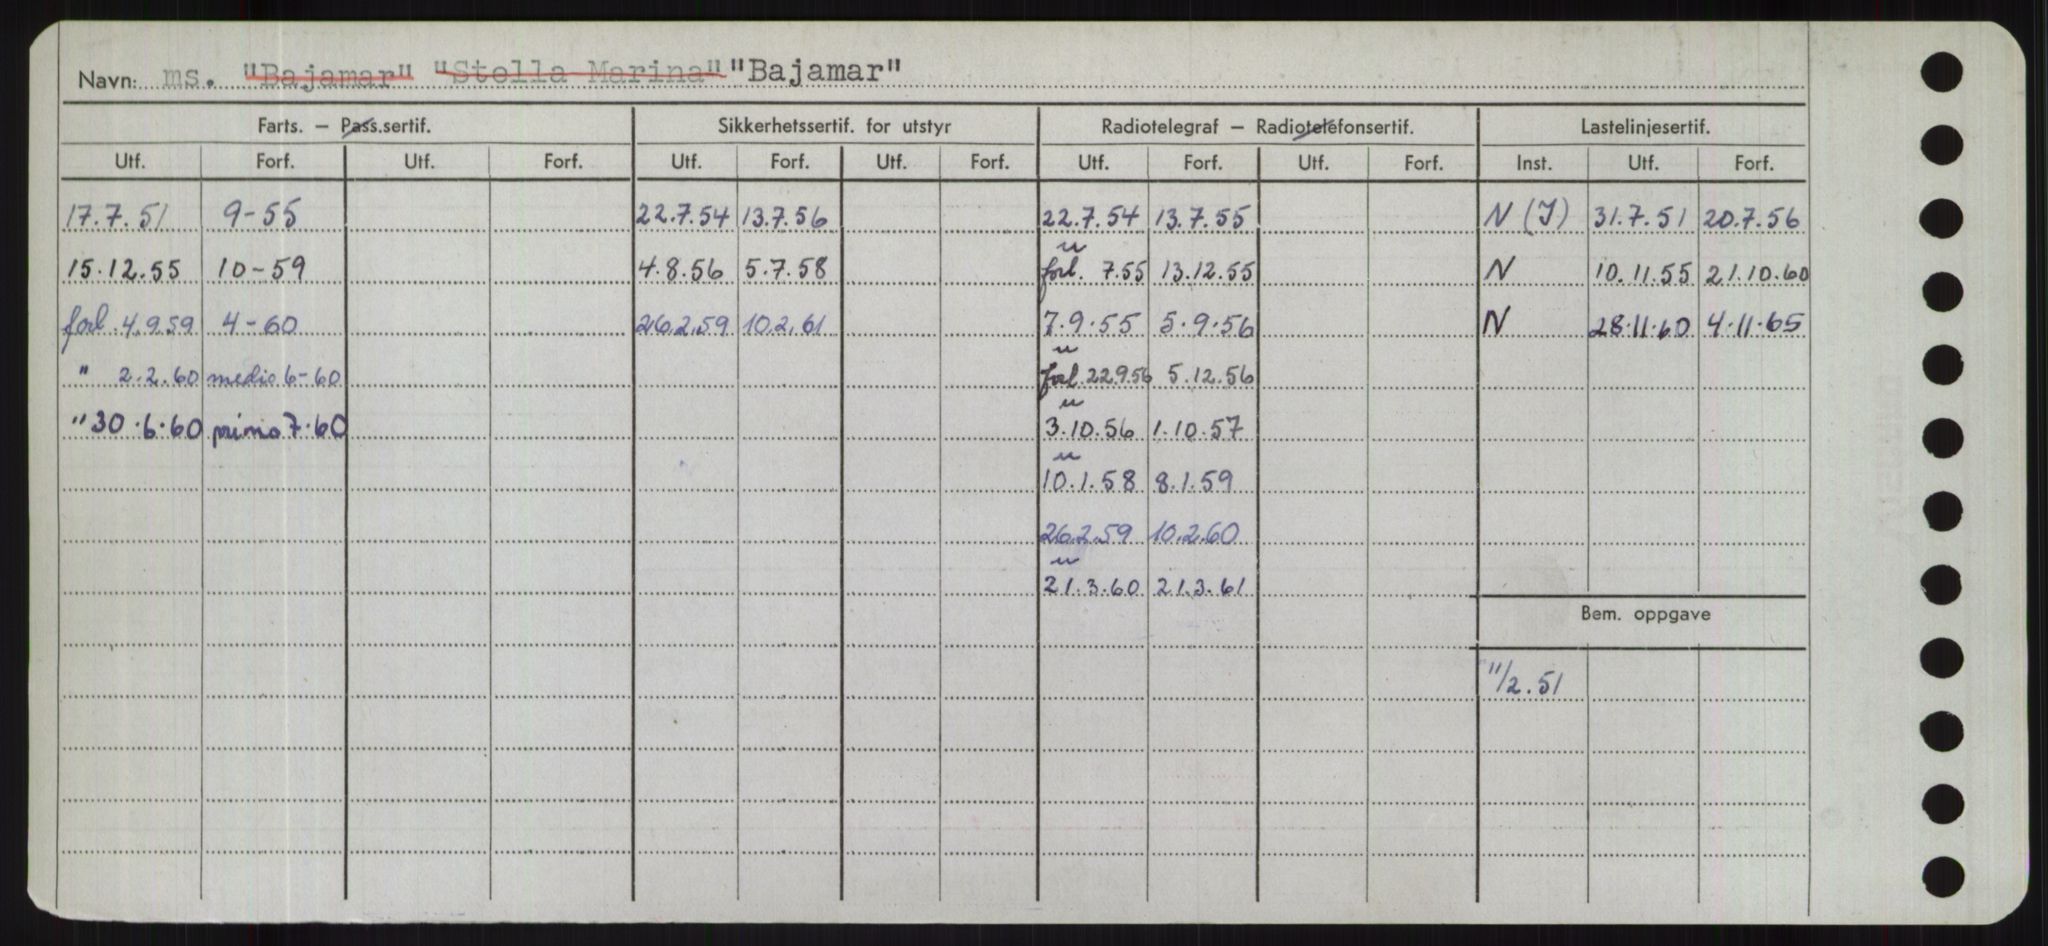 Navn: ms. "Bajamar" "Stella Marina" "Bajamar"
Farts. – Pass.sertif. Sikkerhetssertif. for utstyr Radiotelegraf – Radiotelefonsertif. Lastelinjesertif.
Utf. Forf. Utf. Forf. Utf. Forf. Utf. Forf. Utf. Forf. Utf. Forf. Inst. Utf. Forf.
17.7.51 9-55 22.7.54 13.7.56 22.7.54 13.7.55 N (I) 31.7.51 20.7.56
15.12.55 10-59 4.8.56 5.7.58 forl. 7.55 13.12.55 N 10.11.55 21.10.60
forl. 4.9.59 4-60 26.2.59 10.2.61 7.9.55 5.9.56 N 28.11.60 4.11.65
" 2.2.60 medio 6-60 forl. 22.9.56 5.12.56
" 30.6.60 primo 7.60 3.10.56 1.10.57
10.1.58 8.1.59
26.2.59 10.2.60
21.3.60 21.3.61
Bem. oppgave
11/2.51